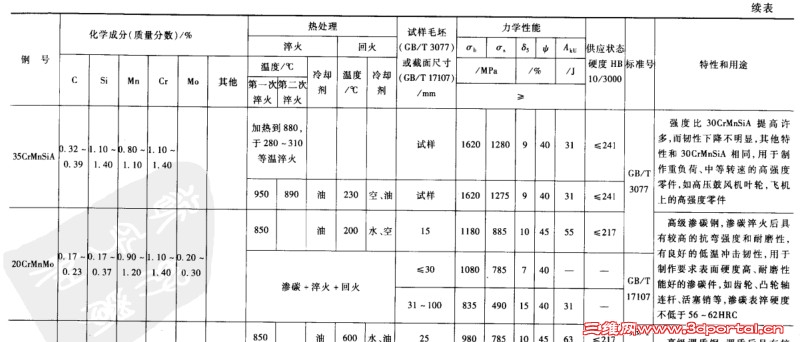 续表
钢 号 化学成分(质量分数)/% 热处理 试样毛坯 (GB/T 3077) 或截面尺寸 (GB/T 17107) /mm 力学性能 供应状态 硬度 HB 10/3000 标准号 特性和用途
淬火 回火 σb σs δ5 ψ AkU
C Si Mn Cr Mo 其他 温度/℃ 冷却剂 温度/℃ 冷却剂 /MPa /% /J
第一次淬火 第二次淬火 ≥
35CrMnSiA 0.32~0.39 1.10~1.40 0.80~1.10 1.10~1.40
加热到 880,
于 280~310
等温淬火
试样 1620 1280 9 40 31 ≤241
950 890 油 230 空,油 试样 1620 1275 9 40 31 ≤241
GB/T 3077
强度比 30CrMnSiA 提高许
多,而韧性下降不明显,其他特
性和 30CrMnSiA 相同,用于制
作重负荷、中等转速的高强度
零件,如高压鼓风机叶轮,飞机
上的高强度零件
20CrMnMo 0.17~0.23 0.17~0.37 0.90~1.20 1.10~1.40 0.20~0.30
850 油 200 水、空 15 1180 885 10 45 55 ≤217
渗碳+淬火+回火
≤30 1080 785 7 40 — —
31~100 835 490 15 40 31 —
GB/T 17107
高级渗碳钢,渗碳淬火后具
有较高的抗弯强度和耐磨性,
有良好的低温冲击韧性,用于
制作要求表面硬度高、耐磨性
能好的渗碳件,如齿轮、凸轮轴
连杆、活塞销等,渗碳表淬硬度
不低于 56~62HRC
850 油 600 水、油 25 980 785 10 45 63 ≤217
三维网www.3dportal.cn